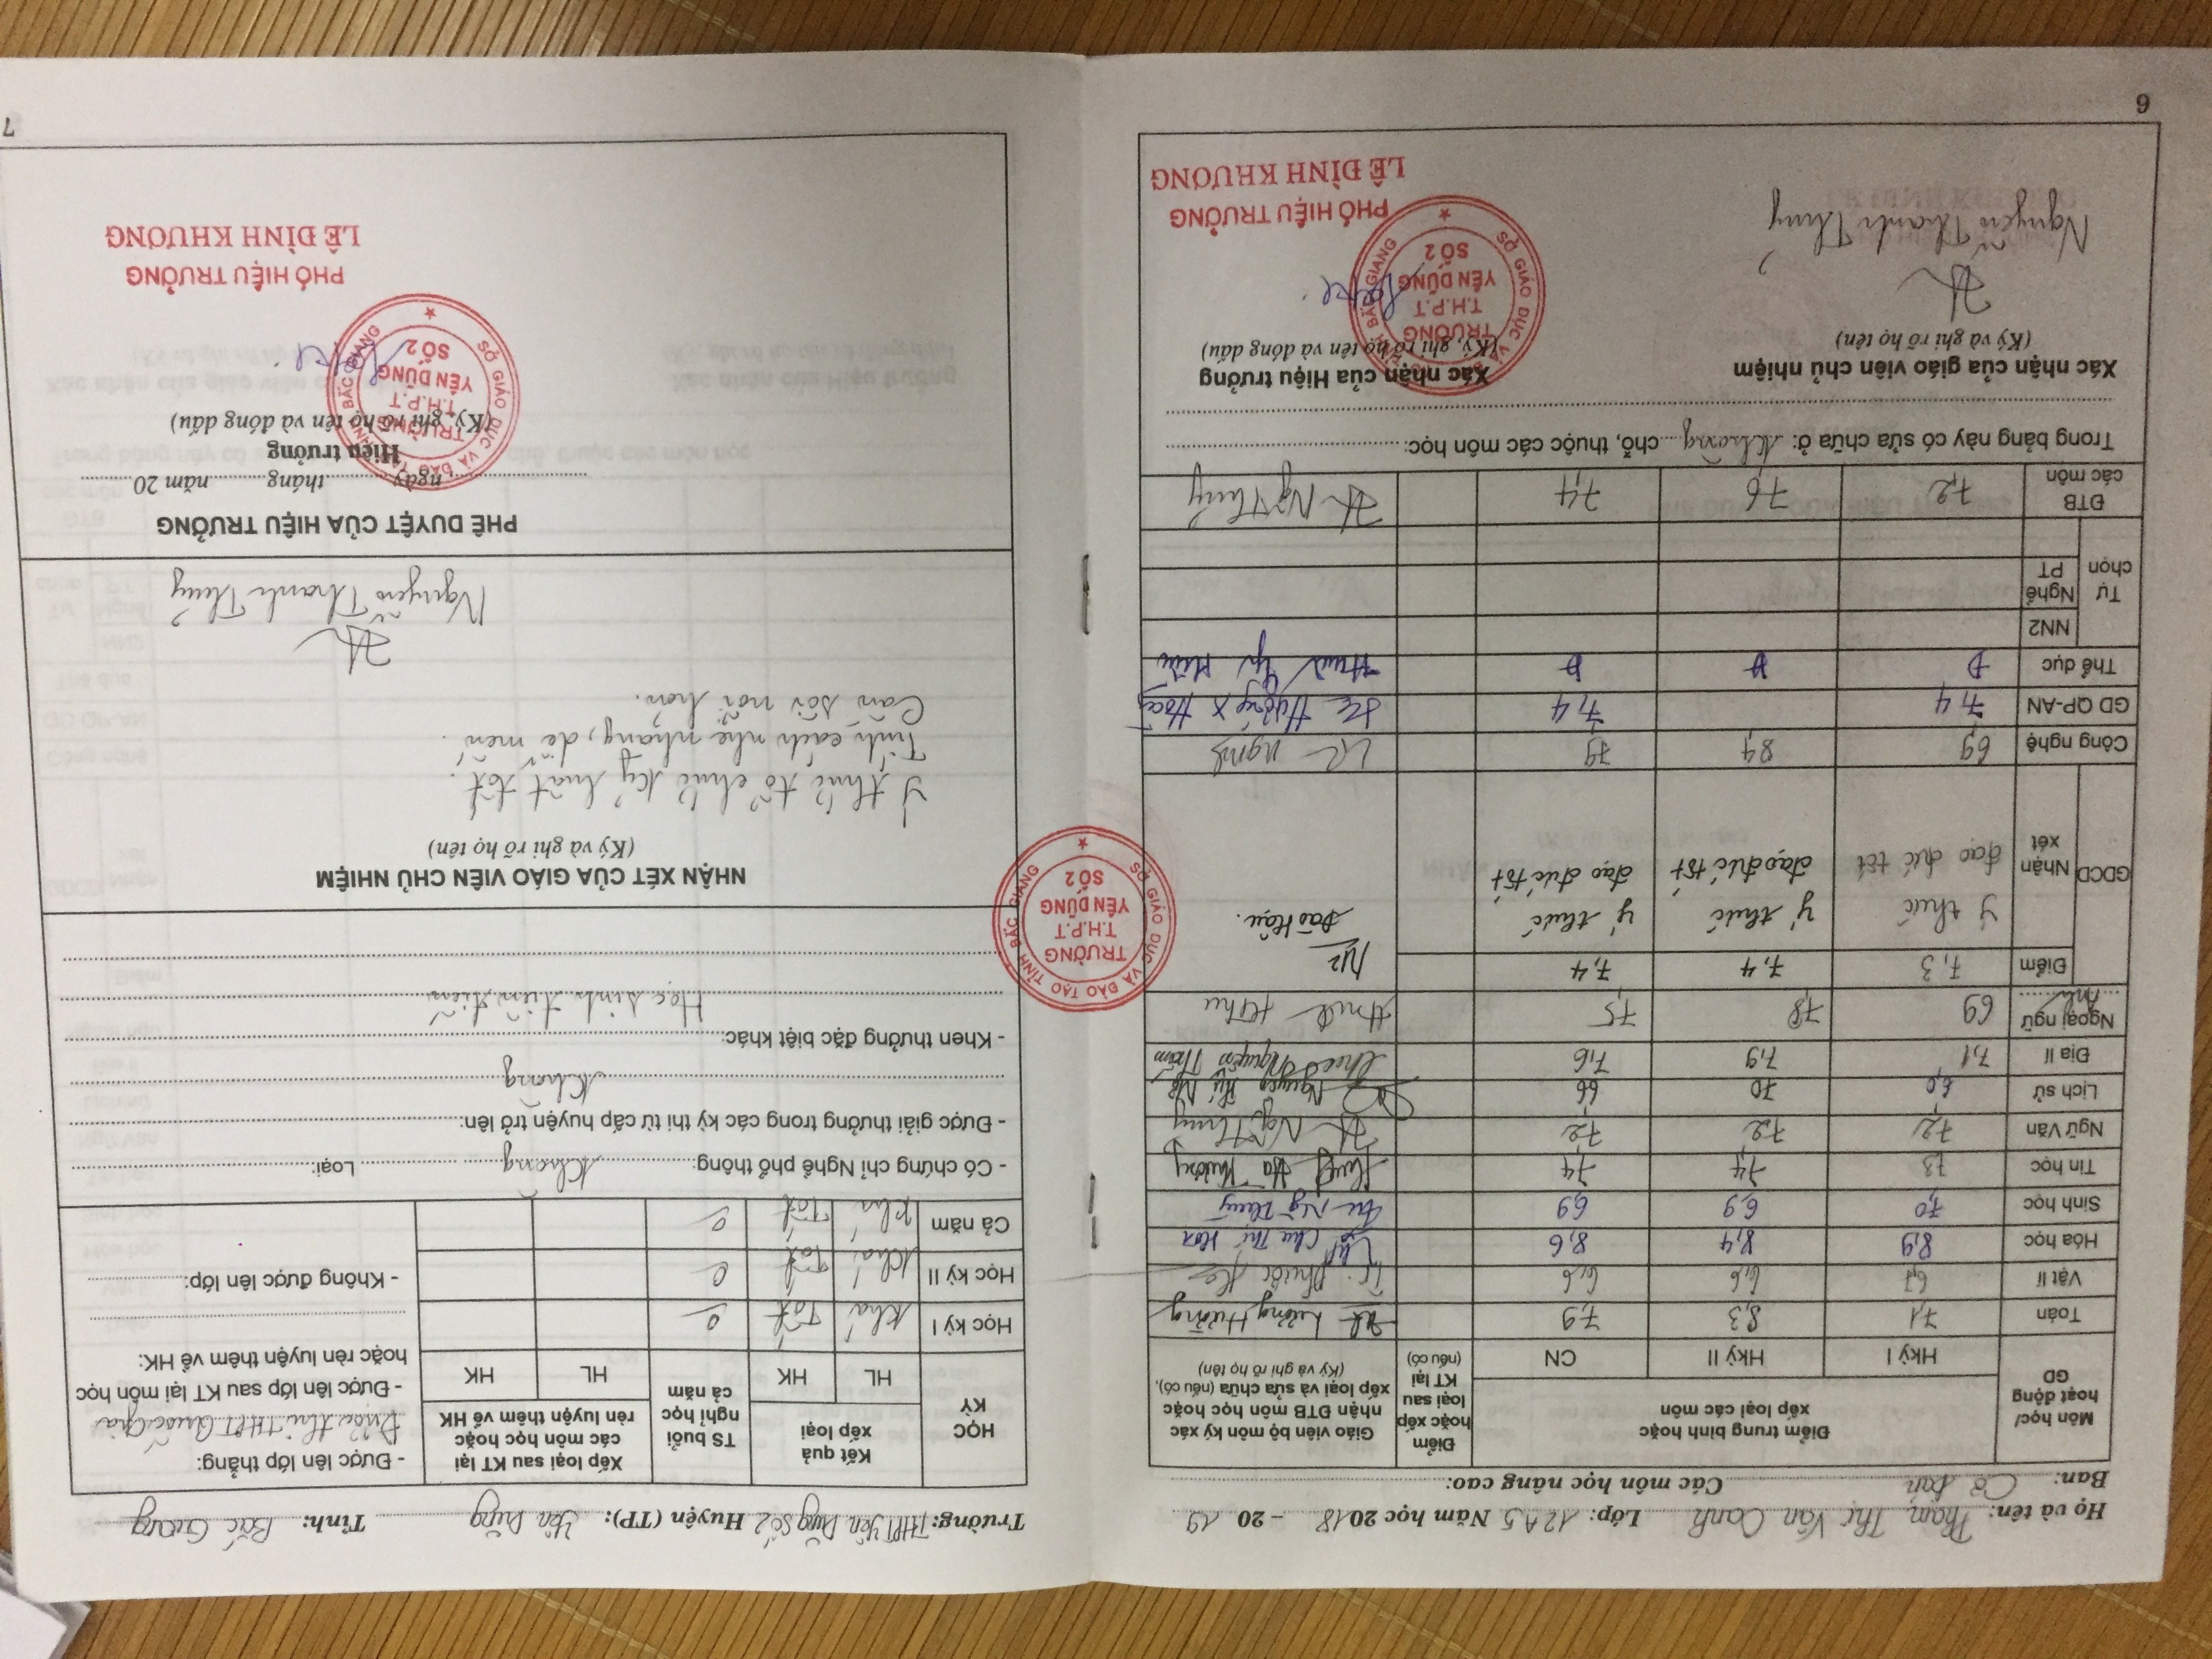 Họ và tên: Phạm Thị Vân Oanh Lớp: 12A5 Năm học 2018 - 2019
Ban: Cơ bản Các môn học nâng cao:
Môn học/ hoạt động GD
Điểm trung bình hoặc xếp loại các môn
Điểm hoặc xếp loại sau KT lại (nếu có)
Giáo viên bộ môn ký xác nhận ĐTB môn học hoặc xếp loại và sửa chữa (nếu có).
(Ký và ghi rõ họ tên)
Hkỳ I Hkỳ II CN
Toán 7,1 8,3 7,9 Lương Hường
Vật lí 6,7 6,6 6,6
Hóa học 8,9 8,4 8,6 Chu Thị Hoa
Sinh học 7,0 6,9 6,9
Tin học 7,3 7,4 7,4 Hà Thương
Ngữ Văn 7,2 7,2 7,2 Ng Thuý
Lịch sử 6,0 7,0 6,6
Địa lí 7,1 7,9 7,6
Ngoại ngữ Anh 6,9 7,8 7,5 H Thu
GDCD Điểm 7,3 7,4 7,4
Nhận xét Ý thức đạo đức tốt Ý thức đạo đức tốt Ý thức đạo đức tốt Đào Hậu.
Công nghệ 6,9 8,4 7,9
GD QP-AN 7,4 7,4
Thể dục Đ Đ Đ
Tự chọn NN2
Nghề PT
ĐTB các môn 7,2 7,6 7,4 Ng Thuý
Trong bảng này có sửa chữa ở: Không chỗ, thuộc các môn học:
Xác nhận của giáo viên chủ nhiệm
(Ký và ghi rõ họ tên)
Nguyễn Thanh Thuý
Xác nhận của Hiệu trưởng
(Ký, ghi rõ họ tên và đóng dấu)
SỞ GIÁO DỤC VÀ ĐÀO TẠO TỈNH BẮC GIANG
TRƯỜNG
T.H.P.T
YÊN DŨNG
SỐ 2
PHÓ HIỆU TRƯỞNG
LÊ ĐÌNH KHƯƠNG
6
Trường: THPT Yên Dũng Số 2 Huyện (TP): Yên Dũng Tỉnh: Bắc Giang
HỌC KỲ
Kết quả xếp loại
TS buổi nghỉ học cả năm
Xếp loại sau KT lại các môn học hoặc rèn luyện thêm về HK
HL HK HL HK
Học kỳ I Khá Tốt
Học kỳ II Khá Tốt
Cả năm Khá Tốt
- Được lên lớp thẳng:
Được thi THPT Quốc gia
- Được lên lớp sau KT lại môn học
hoặc rèn luyện thêm về HK:
- Không được lên lớp:
- Có chứng chỉ Nghề phổ thông: Không Loại:
- Được giải thưởng trong các kỳ thi từ cấp huyện trở lên:
Không
- Khen thưởng đặc biệt khác:
Học sinh tiên tiến
NHẬN XÉT CỦA GIÁO VIÊN CHỦ NHIỆM
(Ký và ghi rõ họ tên)
Ý thức tổ chức kỷ luật tốt.
Tính cách nhẹ nhàng, dễ mến.
Cần sôi nổi hơn.
Nguyễn Thanh Thuý
PHÊ DUYỆT CỦA HIỆU TRƯỞNG
ngày tháng năm 20
Hiệu trưởng
(Ký, ghi rõ họ tên và đóng dấu)
SỞ GIÁO DỤC VÀ ĐÀO TẠO TỈNH BẮC GIANG
TRƯỜNG
T.H.P.T
YÊN DŨNG
SỐ 2
PHÓ HIỆU TRƯỞNG
LÊ ĐÌNH KHƯƠNG
7
SỞ GIÁO DỤC VÀ ĐÀO TẠO TỈNH BẮC GIANG
TRƯỜNG
T.H.P.T
YÊN DŨNG
SỐ 2